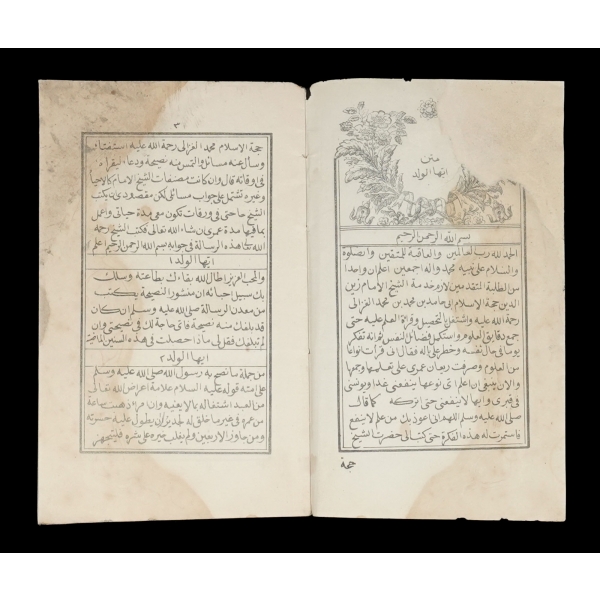 متن
ايها الولد
بسم الله الرحمن الرحيم
الحمد لله رب العالمين والعاقبة للمتقين والصلوة
والسلام على نبيه محمد واله اجمعين اعلم ان واحدا
من الطلبة المتقدمين لازم خدمة الشيخ الامام زين
الدين حجة الاسلام ابى حامد بن محمد بن محمد الغزالى
رحمة الله عليه واشتغل بالتحصيل وقراءة العلم عليه حتى
جمع دقايق العلوم واستكمل فضائل النفس ثم انه تفكر
يوما فى حال نفسه وخطر على باله فقال انى قرأت انواعا
من العلوم وصرفت ريعان عمرى على تعلمها وجمعها
والان ينبغى ان اعلم اى نوعها ينفعنى غدا ويونسى
فى قبرى وايها لا ينفعنى حتى اتركه كما قال
صلى الله عليه وسلم اللهم انى اعوذ بك من علم لا ينفع
فاستمرت له هذه الفكرة حتى كتب الى حضرت الشيخ
حجة
٣
حجة الاسلام محمد الغزالى رحمة الله عليه استفتاء
وسأل عنه مسائل والتمس منه نصيحة ودعاء ليقرأه
فى وقاته قال وان كانت مصنفات الشيخ الامام كالاحيا
وغيره تشتمل على جواب مسائلى لكن مقصودى ان يكتب
الشيخ حاجتى فى ورقات تكون معى مدة حياتى واعمل
بما فيها مدة عمرى ان شاء الله تعالى فكتب الشيخ رحمه
الله هذه الرسالة فى جوابه بسم الله الرحمن الرحيم اعلم
ايها الولد ١
والمحب العزيز اطال الله بقاءك بطاعته وسلك
بك سبيل احبائه ان منشور النصيحة يكتب
من معدن الرسالة صلى الله عليه وسلم ان كان
قد بلغك منه نصيحة فاى حاجة لك فى نصيحتى وان
لم تبلغك فقل لى ماذا حصلت فى هذه السنين الماضية
ايها الولد ٢
من جملة ما نصح به رسول الله صلى الله عليه وسلم
على امته قوله عليه السلام علامة اعراض الله تعالى
من العبد اشتغاله بما لا يعنيه وان امرء ذهبت ساعة
من عمره فى غير ما خلق له لجدير ان يطول عليه حسرته
ومن جاوز الاربعين ولم يغلب خيره على شره فليتجهز